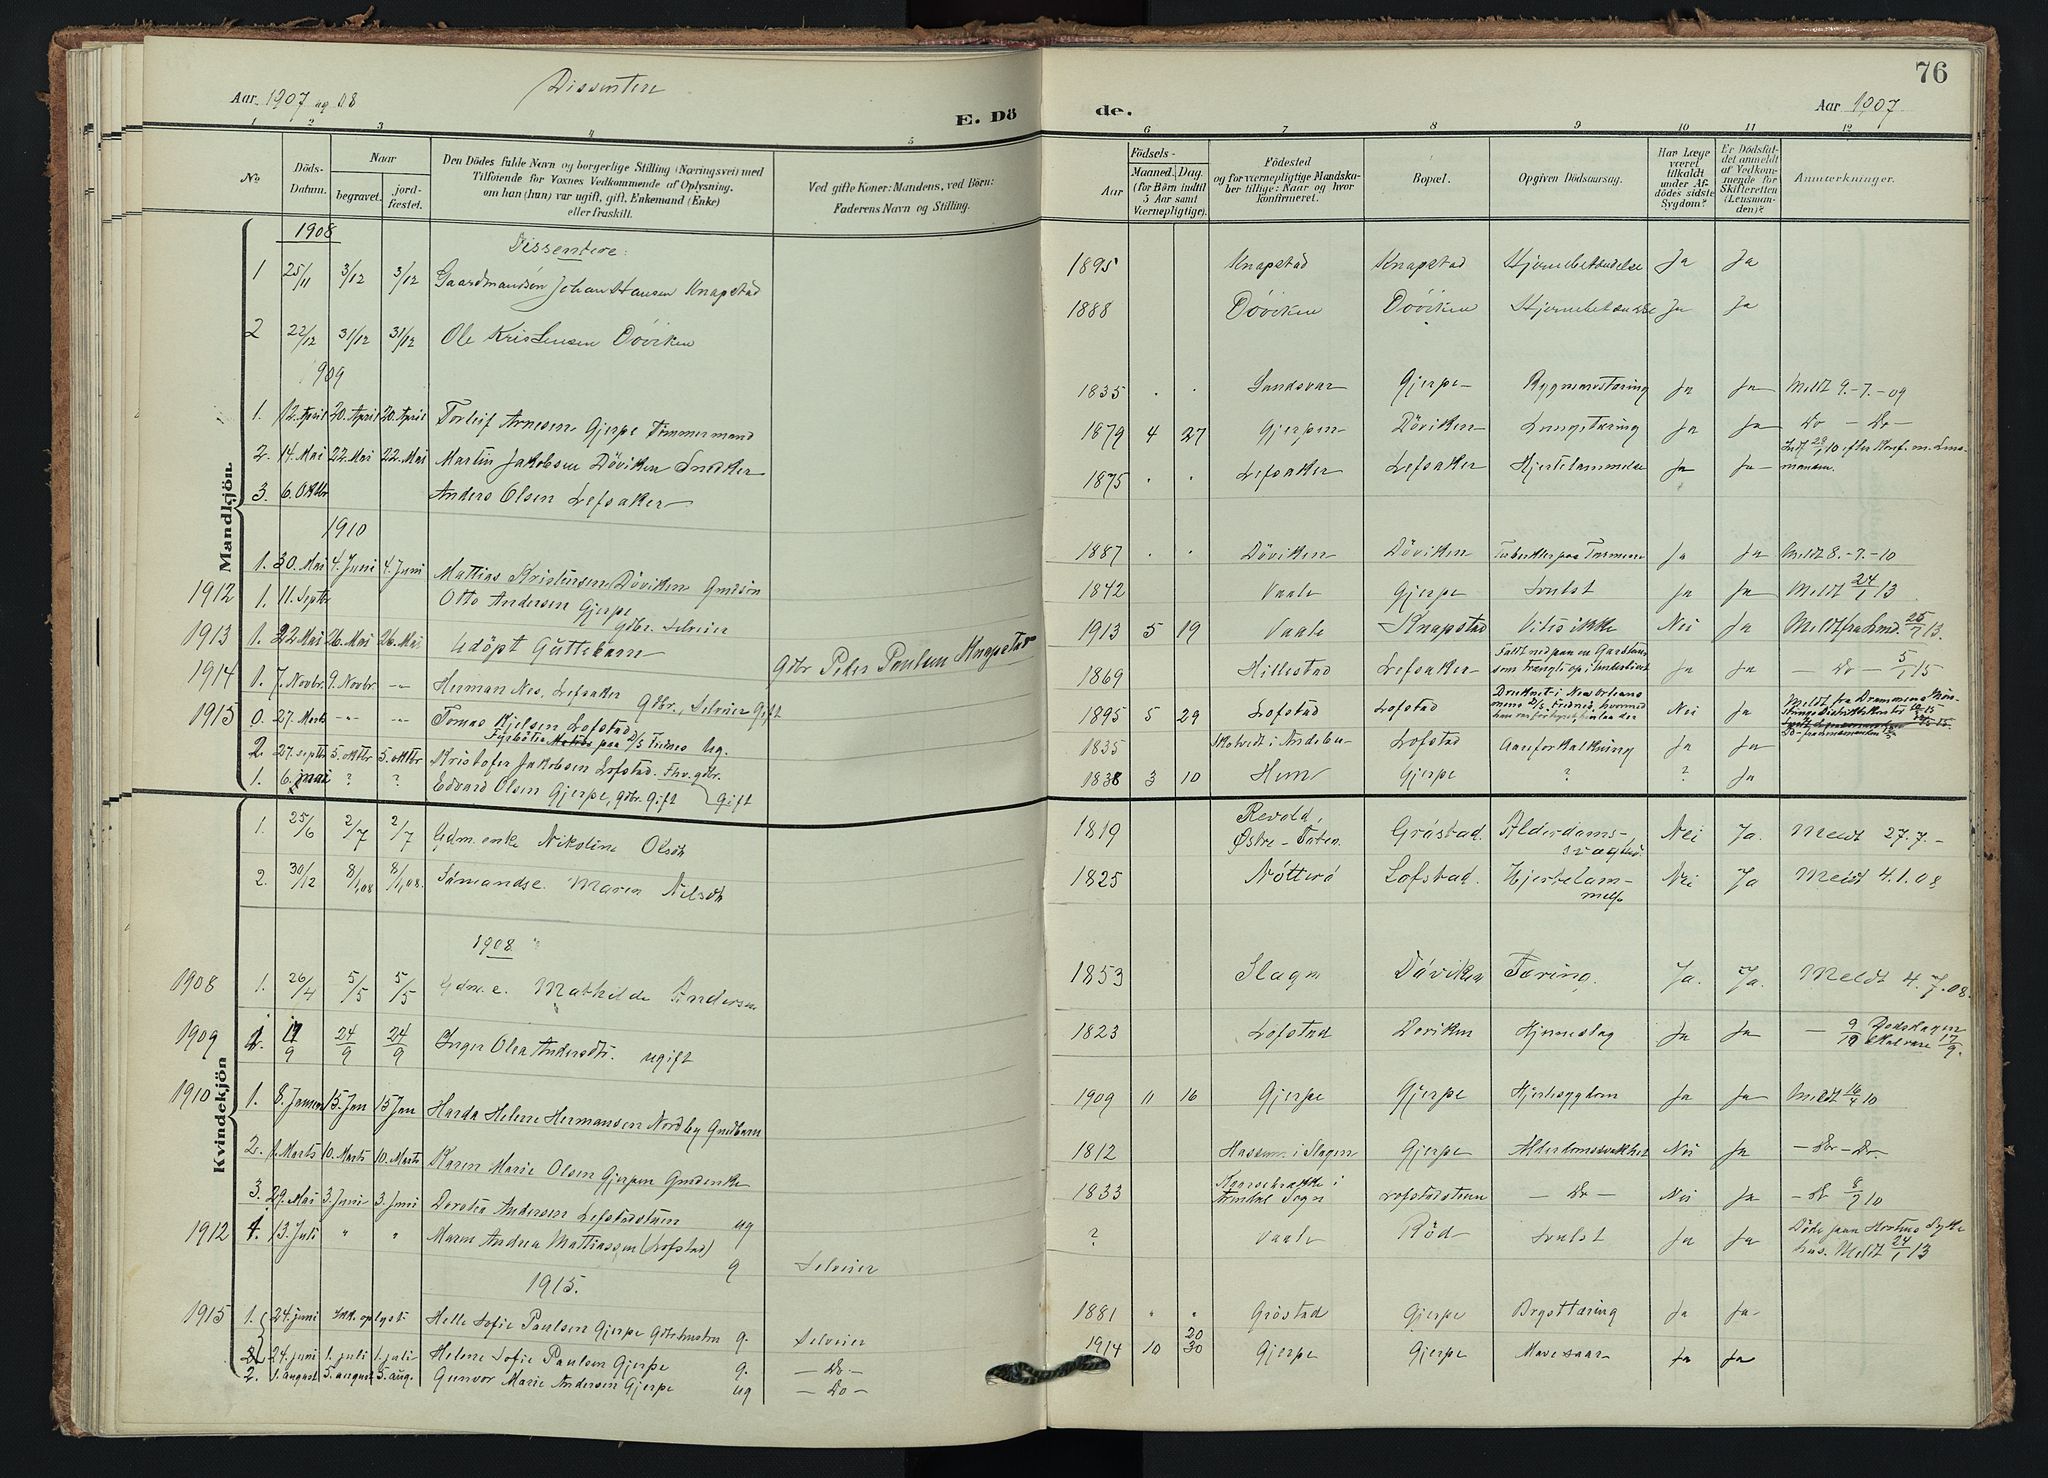 76
Aar 1907 og 08
Dissentere
E. Dö
de.
Aar 1907
1 2 3 4 5 6 7 8 9 10 11 12
No
Döds-Datum.
Naar
begravet.
jord-fæstet.
Den Dödes fulde Navn og borgerlige Stilling (Næringsvei) med
Tilföiende for Voxnes Vedkommende af Oplysning,
om han (hun) var ugift, gift, Enkemand (Enke)
eller fraskilt.
Ved gifte Koner: Mandens, ved Börn:
Faderens Navn og Stilling.
Födsels-
Aar
Maaned. Dag.
(for Börn indtil
5 Aar samt
Værnepligtige).
Födested
og for værnepligtige Mandska-
ber tillige: Naar og hvor
konfirmeret.
Bopæl.
Opgiven Dödsaarsag.
Har Læge
været
tilkaldt
under Af-
dödes sidste
Sygdom?
Er Dödsfal-
det anmeldt
af Vedkom-
mende for
Skifteretten
(Lensman-
den)?
Anmærkninger.
Mandkjön
1908
Dissentere:
1 25/11 3/12 3/12 Gaardmandsön Johan Hansen Knapstad 1895 Knapstad Knapstad Hjernebetændelse Ja Ja
2 22/12 31/12 31/12 Ole Kristensen Döviken 1888 Döviken Döviken Ja Ja
1909
1. 12. April 20. April 20. April Torleif Arnesen Gjerpe Timmermand 1835 . . Sandsvær Gjerpe Rygmarvstæring Ja Ja Meldt 9.-7.-09
2. 14. Mai 22. Mai 22. Mai Martin Jakobsen Döviken Snedker 1879 4 27 Gjerpen Döviken Lungetæring Ja Ja Do - Do -
3. 6. Oktbr Anders Olsen Lefsaker 1875 . . Lefsaker Lefsaker Hjertelammelse Ja Ja
1910
1. 30. Mai 4. Juni 4. Juni Mattias Kristensen Döviken Gmdsön 1887 . . Döviken Döviken Tuberkler paa Tarmene Ja Ja Meldt 8.-7.-10
1912 1. 11. Septbr Otto Andersen Gjerpe 1842 Vaale Gjerpe Svulst Ja Ja Meldt 24/1 13
Gdbr. Selveier
1913 1. 22. Mai 26. Mai 26. Mai Udöpt Guttebarn Gdbr Peder Paulsen Knapstad 1913 5 19 Vaale Knapstad Vites ikke Nei Ja Meldt fra Lmd. 25/7 13.
1914 1. 7. Novbr. 9. Novbr. -"- Herman Nes, Lefsaker Gdbr., Selveier Gift 1869 Hillestad Lefsaker Ja Ja - Do - 5/1 15
1915 0. 27. Marts -"- -"- Tomas Kjelsen Lofstad 1895 5 29 Lofstad Lofstad Druknet i New Orleans Nei Ja Meldt fra Drammens
Fyrböter paa D/S Fridnes Ug.
2. 27. septbr 5. oktbr 5. oktbr Kristofer Jakobsen Lofstad. Fhv. gdbr. Gift 1835 Skotvedt i Andebu Lofstad Aareforkalkning Ja Ja
1. 6. mai ? ? Edvard Olsen Gjerpe, gdbr. Gift 1838 3 10 Hem Gjerpe ? ? Ja
Kvindekjön
1. 25/6 2/7 2/7 Gdm. enke Nikoline Olsen 1819 Revold, Östre-Toten Gröstad. Alderdoms-svaghed Nei Ja. Meldt 27.7.-
2. 30/12 8/1 08 8/1 08. Sömandse. Maren Nelsen 1825 Nötterö Lofstad. Hjertelam-melse Nei Ja Meldt 4.1.08
1908
1908 1. 26/4 5/5 5/5 Gdm. e. Mathilde Andersen 1853 Slagn Döviken Tæring. Ja. Ja. Meldt 4.7.08.
1909 1. 17/9 24/9 24/9 Inger Olea Andersdt. ugift 1823 Lofstad Döviken Hjerneslag Ja Ja - 9/10 Dödsdagen skal være 17/9.
1910 1. 8. Januar 15. Jan 15 Jan Harda Helene Hermansen Nordby Gmdbarn 1909 11 16 Gjerpe Gjerpe Hjertesygdom Ja Ja Meldt 16/4 10
2. 1. Marts 10. Marts 10. Marts Karen Marie Olsen Gjerpen Gmdenke 1812 Hassum i Slagen Gjerpe Alderdomssvakhet Nei Ja - Do - Do.
3. 29. Mai 3. Juni 3. Juni Dortea Andersen Lofstadstuen ug 1833 Lofstadstuen - Do - Nei Ja - Do 8/7 10
1912 1. 13. Juli " " Maren Andrea Mattiassen (Lofstad) g Selveier ? Vaale Röd Svulst Ja Ja Döde paa Hortens Syke
hus. Meldt 24/1 13
1915.
1915 1. 24. juni Ikk. oplyst Helle Sofie Paulsen Gjerpe g. Selveier 1881 " " Gröstad Gjerpe Brysttæring Ja Ja
24. juni 1. juli 1. juli Helene Sofie Paulsen Gjerpe g. - Do -
2. 1. august 5. august 5. aug. Gunvor Marie Andersen Gjerpe ug - Do - 1914 10 20 30 Gjerpe Gjerpe Mavesaar Ja Ja